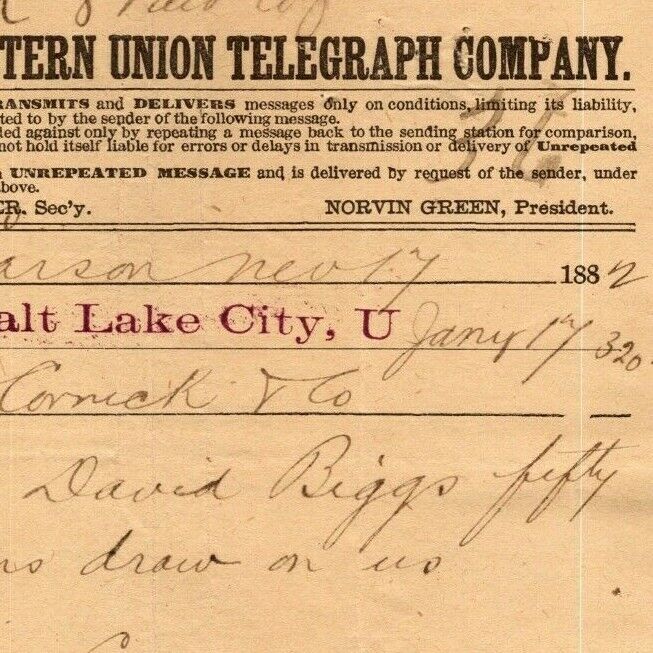 TERN UNION TELEGRAPH COMPANY.
RANSMITS and DELIVERS messages only on conditions, limiting its liability,
ted to by the sender of the following message.
ded against only by repeating a message back to the sending station for comparison,
not hold itself liable for errors or delays in transmission or delivery of Unrepeated
UNREPEATED MESSAGE and is delivered by request of the sender, under
bove.
ER, Sec'y. NORVIN GREEN, President.
arson Nev 17 1882
alt Lake City, U Jany 17 320
Cornick & Co
David Biggs fifty
ns draw on us